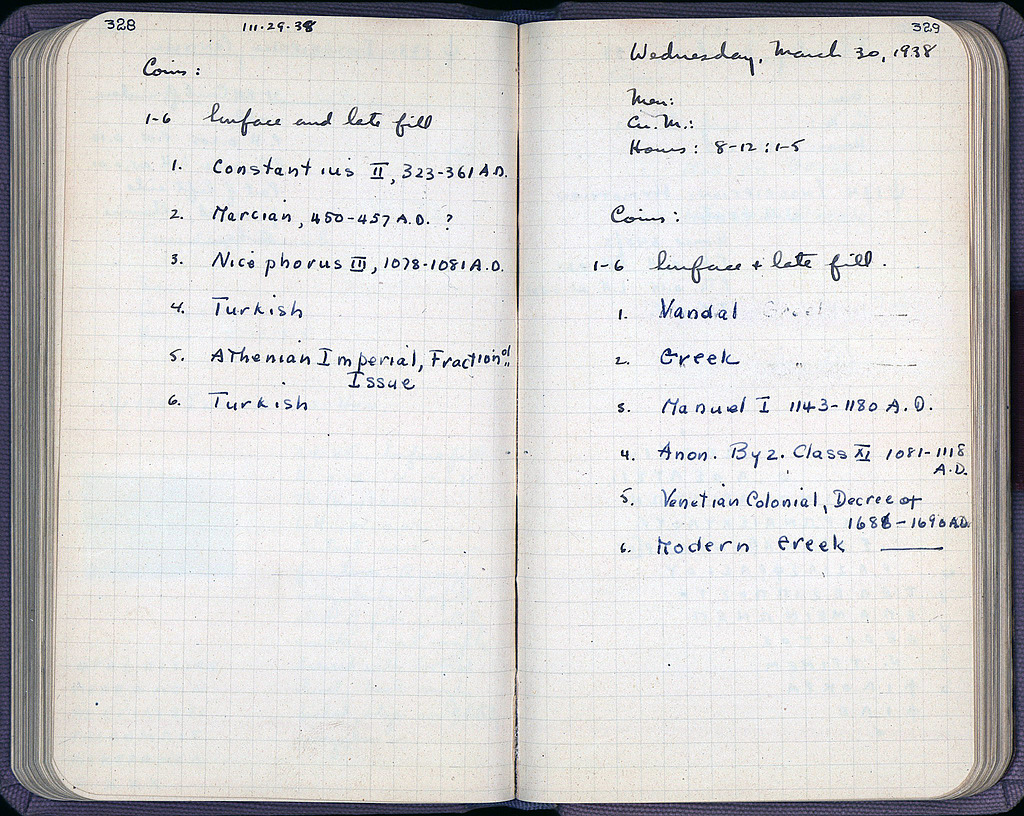 328
III·29·38
Coins:
1-6 Surface and late fill
1. Constantius II, 323-361 A.D.
2. Marcian, 450-457 A.D. ?
3. Nicephorus III, 1078-1081 A.D.
4. Turkish
5. Athenian Imperial, Fractional
Issue
6. Turkish
329
Wednesday, March 30, 1938
Men:
Cu. M.:
Hours: 8-12 : 1-5
Coins:
1-6 Surface + late fill.
1. Vandal
2. Greek
3. Manuel I 1143-1180 A.D.
4. Anon. Byz. Class XI 1081-1118
A.D.
5. Venetian Colonial, Decree of
1688-1690 A.D.
6. Modern Greek